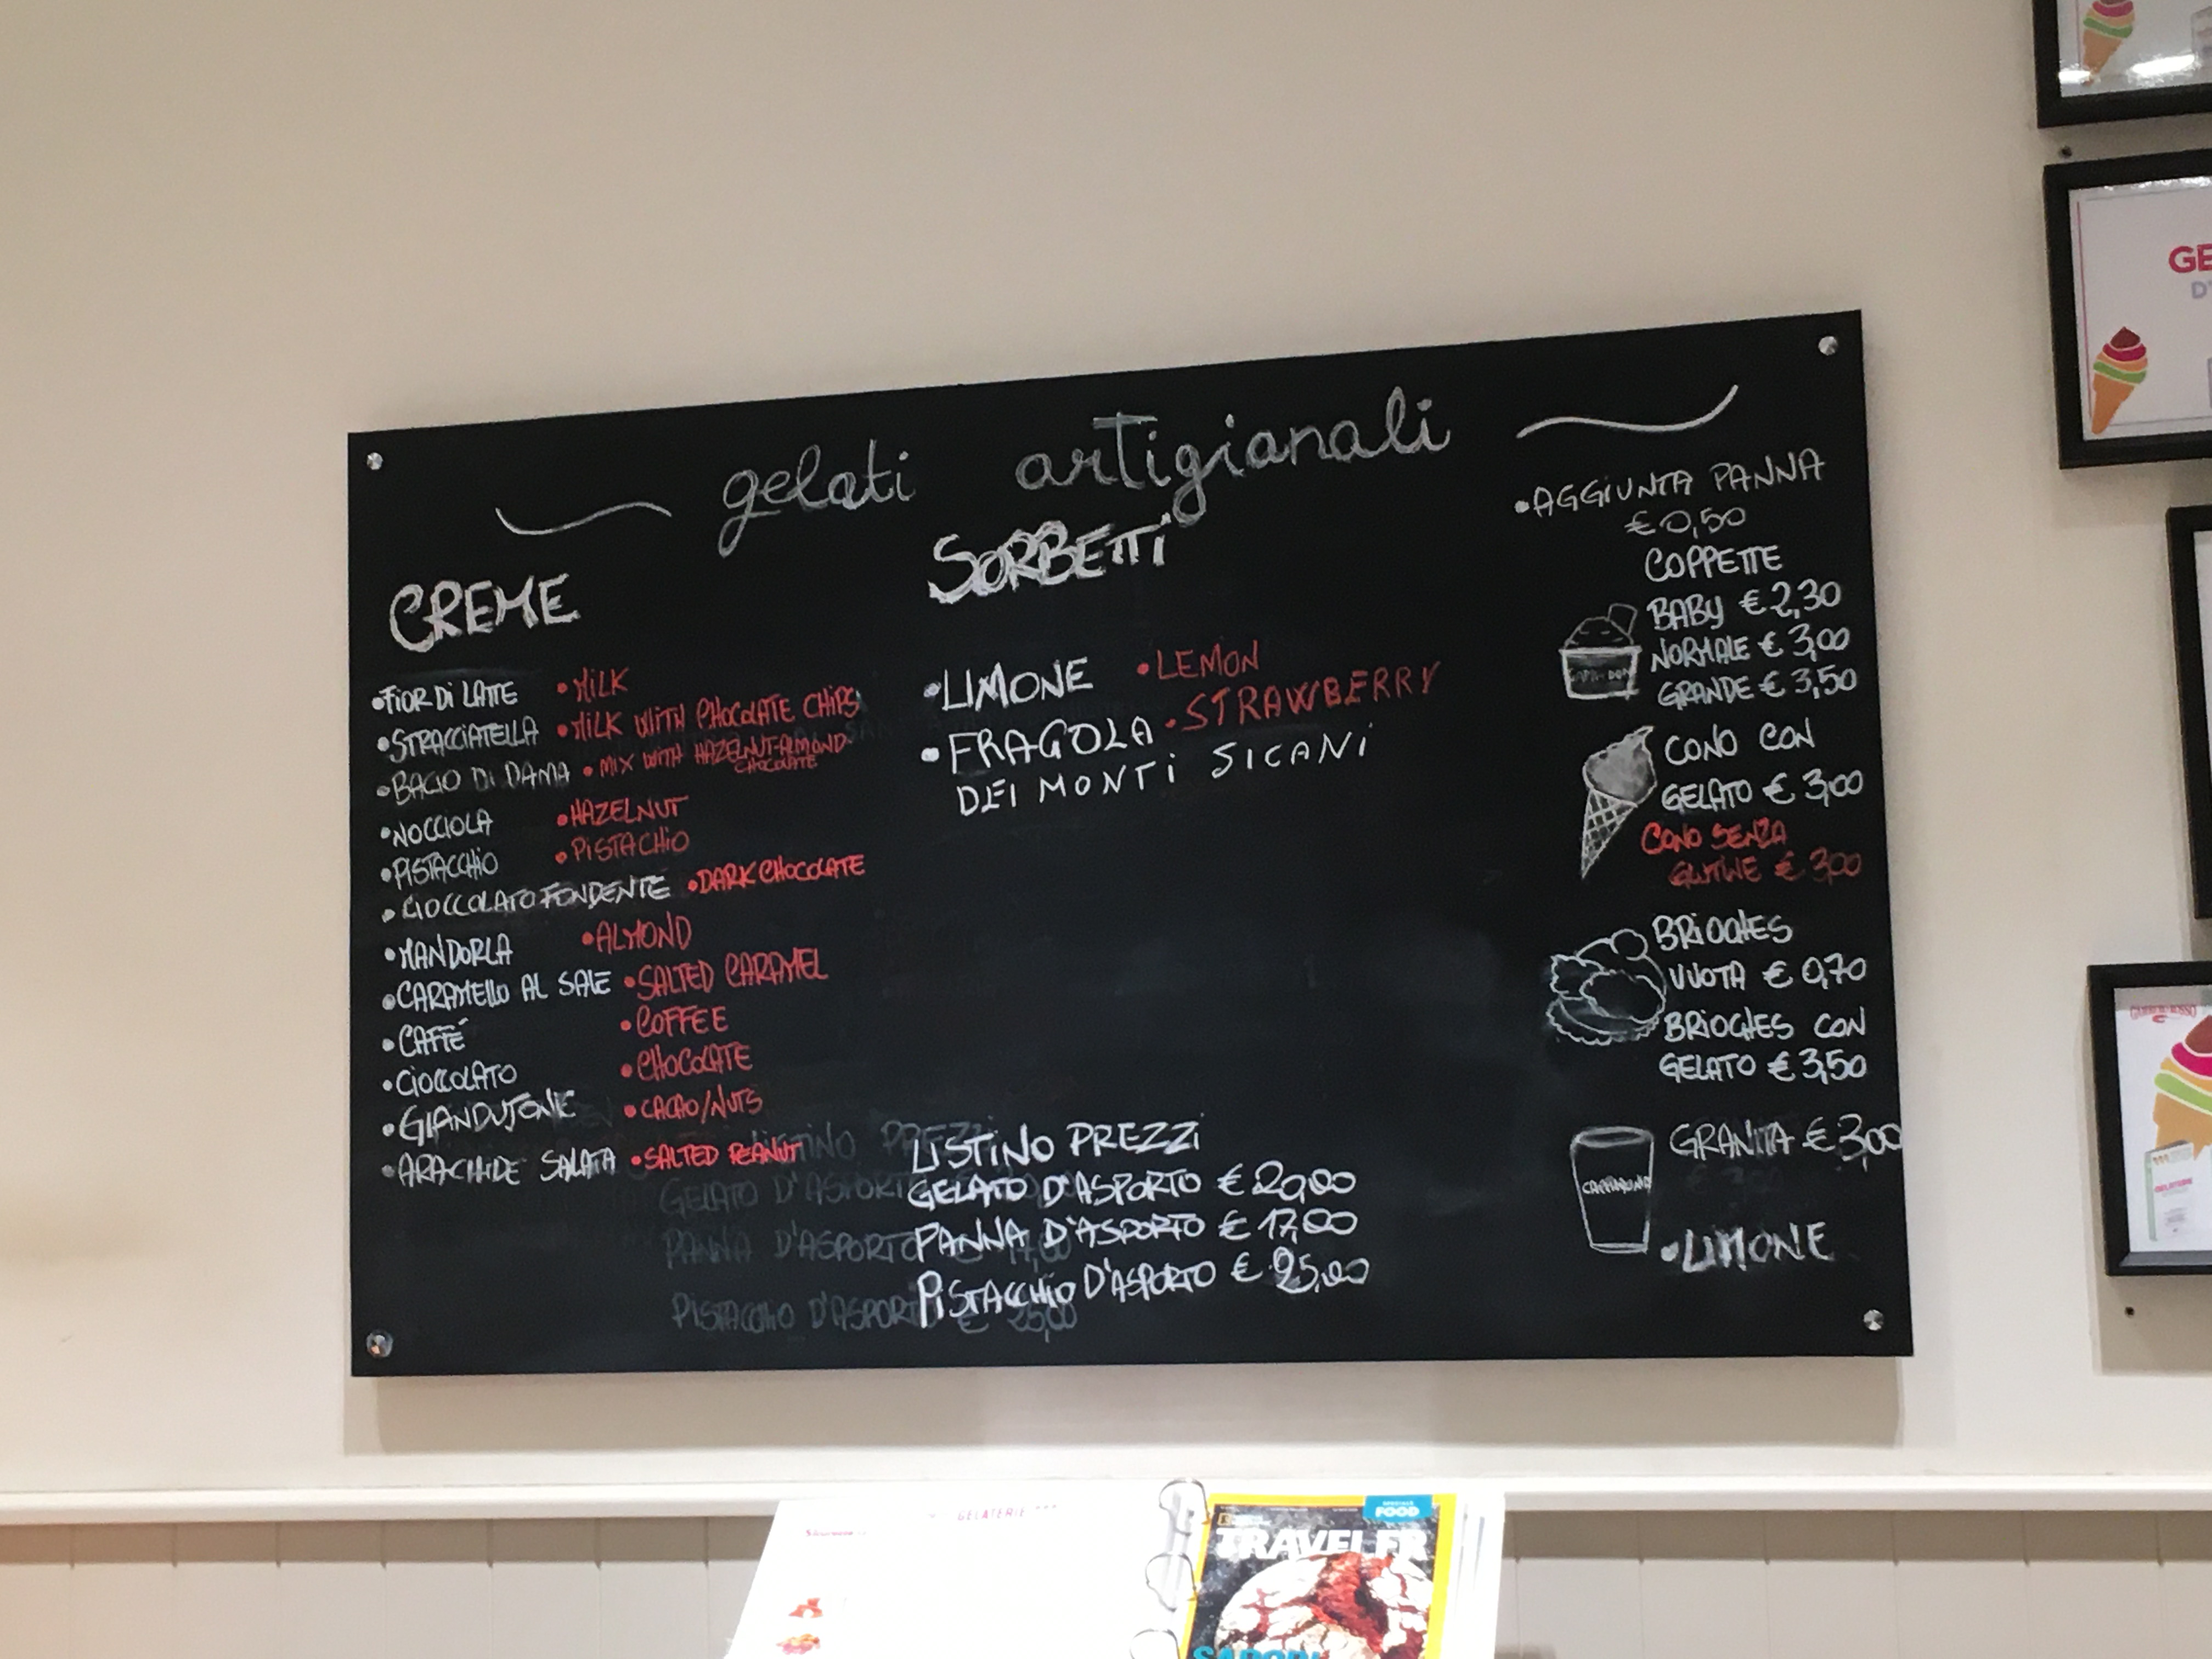 gelati artigianali
CREME
•FIOR DI LATTE •MILK
•STRACCIATELLA •MILK WITH CHOCOLATE CHIPS
•BACIO DI DAMA •MIX WITH HAZELNUT-ALMOND-
CHOCOLATE
•NOCCIOLA •HAZELNUT
•PISTACCHIO •PISTACHIO
•CIOCCOLATO FONDENTE •DARK CHOCOLATE
•MANDORLA •ALMOND
•CARAMELLO AL SALE •SALTED CARAMEL
•CAFFÉ •COFFEE
•CIOCCOLATO •CHOCOLATE
•GIANDUJONE •CACAO/NUTS
•ARACHIDE SALATA •SALTED PEANUT
SORBETTI
•LIMONE •LEMON
•FRAGOLA •STRAWBERRY
DEI MONTI SICANI
LISTINO PREZZI
GELATO D'ASPORTO € 20,00
PANNA D'ASPORTO € 17,00
PISTACCHIO D'ASPORTO € 25,00
LISTINO PREZZI
GELATO D'ASPORTO
PANNA D'ASPORTO 17,00
PISTACCHIO D'ASPORTO € 25,00
•AGGIUNTA PANNA
€ 0,50
COPPETTE
BABY € 2,30
NORMALE € 3,00
GRANDE € 3,50
CONO CON
GELATO € 3,00
CONO SENZA
GLUTINE € 3,00
BRIOCHES
VUOTA € 0,70
BRIOCHES CON
GELATO € 3,50
GRANITA € 3,00
•LIMONE
GE
D'
GAMBERO ROSSO
GELATERIE
GELATERIE
SPECIALE
FOOD
TRAVELER